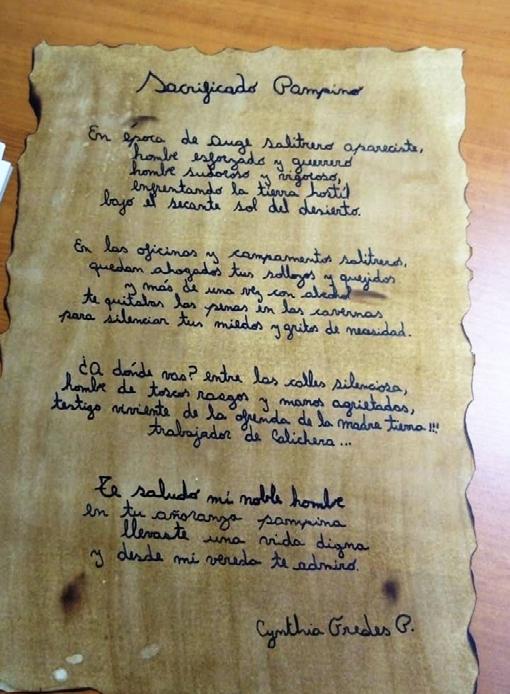 Sacrificado Pampino
En época de auge salitrero apareciste,
hombe esforzado y guerrero
hombe sudoroso y vigoroso,
enfrentando la tierra hostil
bajo el secante sol del desierto.
En las oficinas y campamentos salitreros,
quedan ahogados tus sollozos y quejidos
y más de una vez con alcohol
te quitabas las penas en las cavernas
para silenciar tus miedos y gritos de necesidad.
¿A dónde vas? entre las calles silenciosa,
hombe de toscos rasgos y manos agrietadas,
testigo viviente de la ofrenda de la madre tierra !!!
trabajador de Calichera...
Te saludo mi noble hombe
en tu añoranza pampina
llevaste una vida digna
y desde mi vereda te admiro.
Cynthia Fredes P.